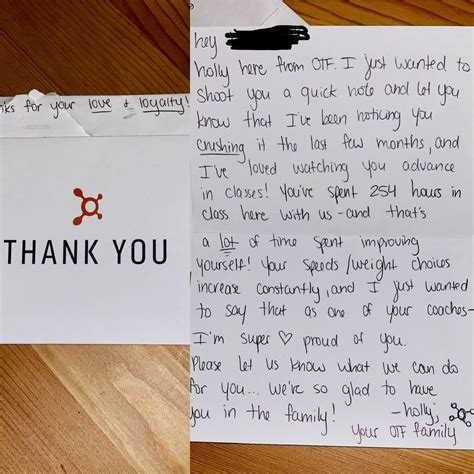 ks for your love & loyalty!
THANK YOU
hey
holly here from OTF. I just wanted to
shoot you a quick note and let you
know that I've been noticing you
crushing it the last few months, and
I've loved watching you advance
in classes! You've spent 254 hours in
class here with us - and that's
a lot of time spent improving
yourself! Your speeds/weight choices
increase constantly, and I just wanted
to say that as one of your coaches-
I'm super ♡ proud of you.
Please let us know what we can do
for you... we're so glad to have
you in the family! -holly,
your OTF family